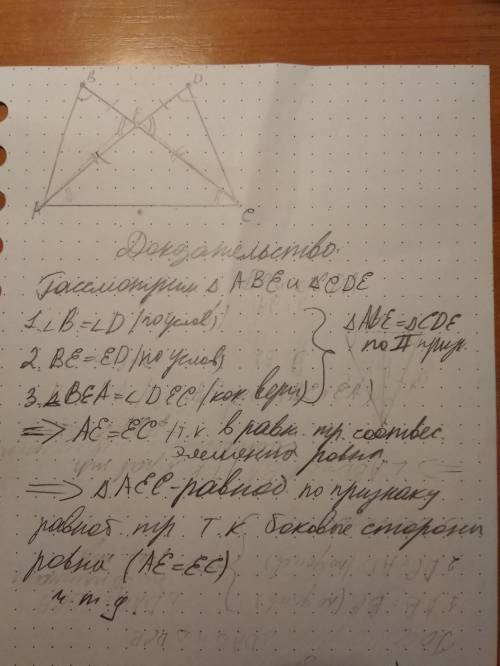 B D
A C
Доказательство.
Рассмотрим △ ABE и △CDE
1. ∠B = ∠D (по услов)
2. BE = ED (по услов)
3. ∠BEA = ∠DEC (как верт)
△ABE = △CDE
по II приз.
=> AE = EC т.к в равн. тр. соотвес.
элементы равны.
=> △AEC - равноб по признаку
равноб тр. т.к боковые стороны
равны (AE = EC)
ч.т.д.